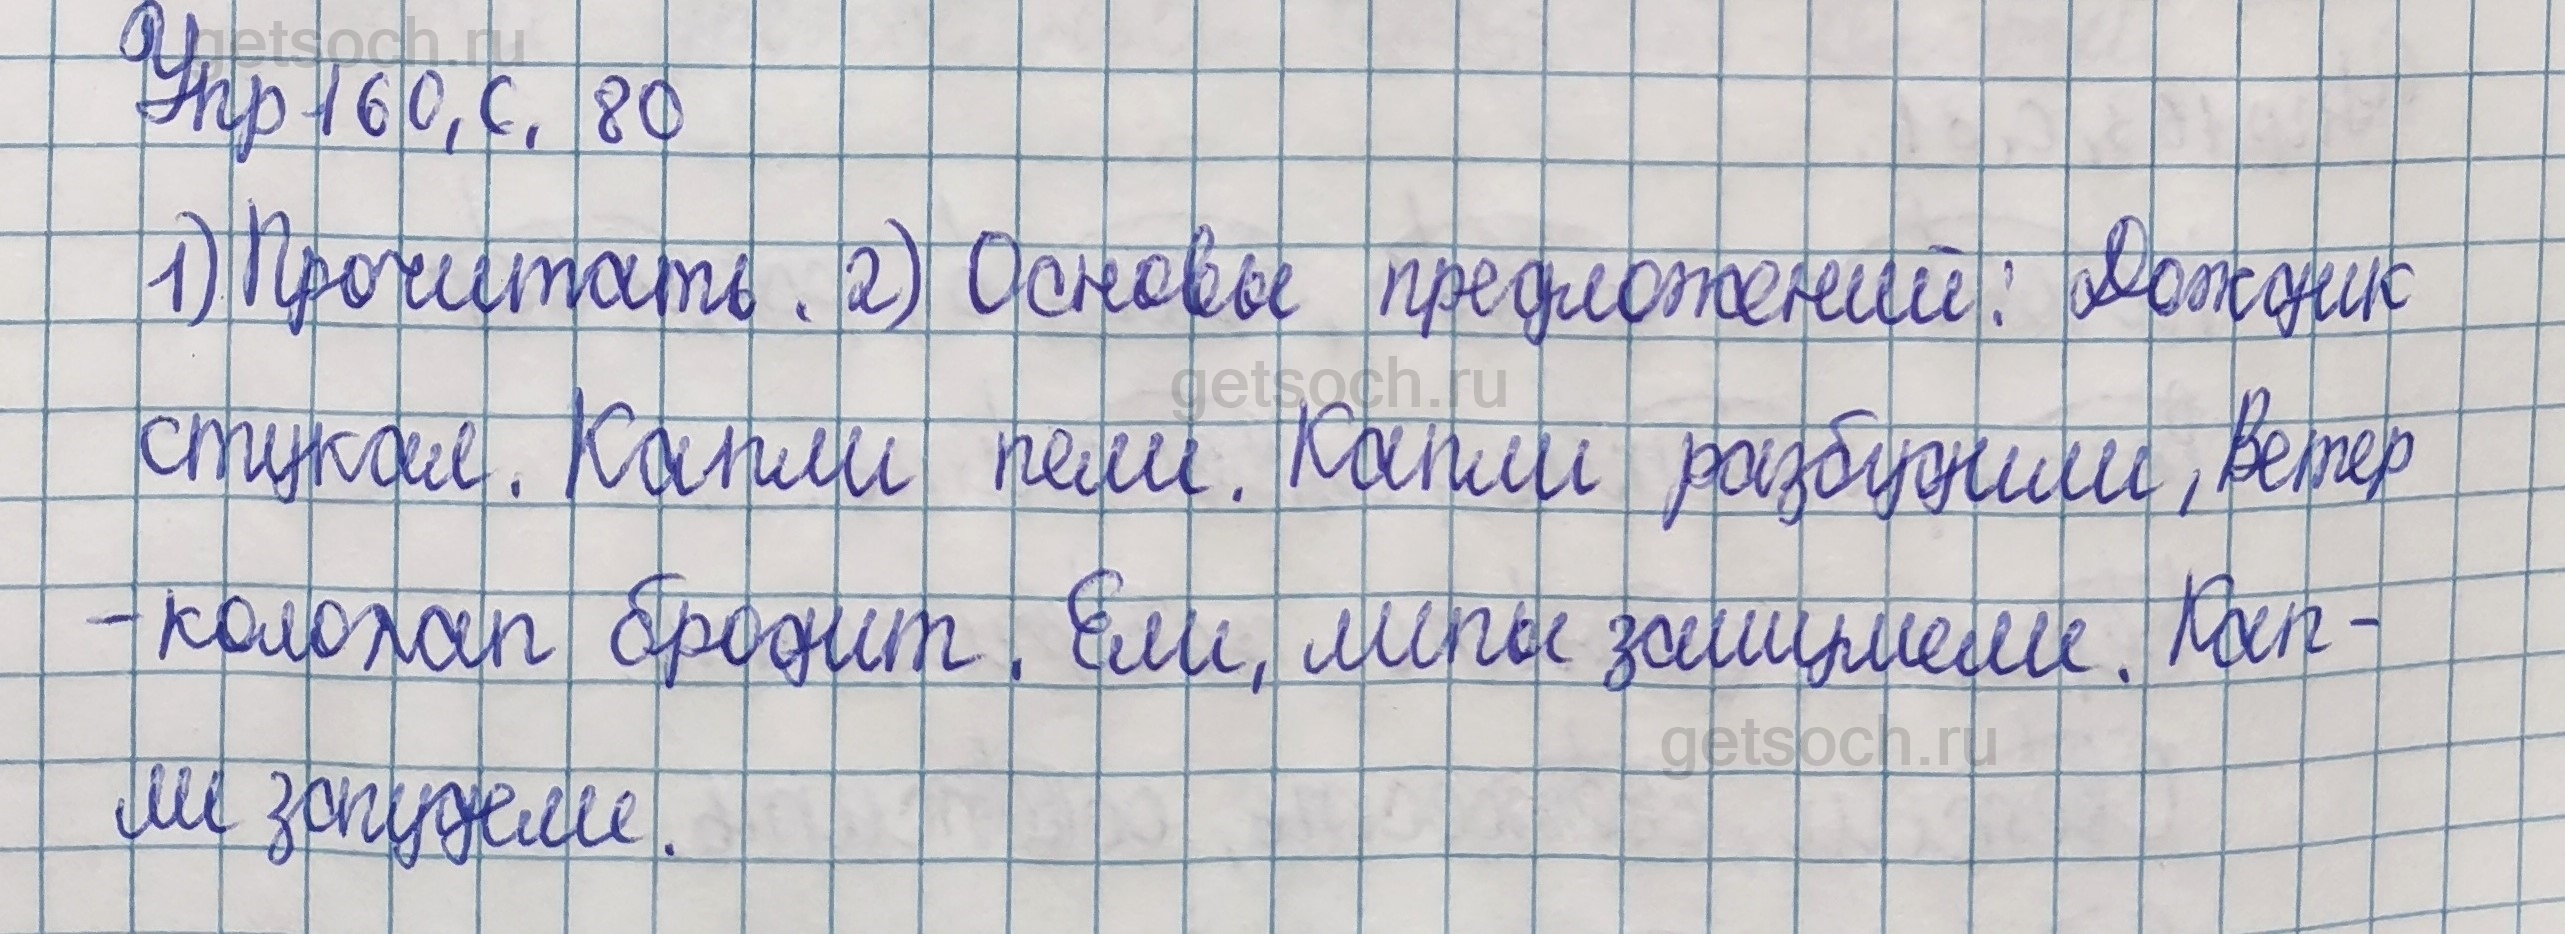 getsoch.ru
Упр 160, с. 80
1) Прочитать. 2) Основы предложений: Дождик
getsoch.ru
стукал. Капли пели. Капли разбудили, Ветер
-колохап бродит. Ели, липы зашумели. Кап-
getsoch.ru
ли запудели.